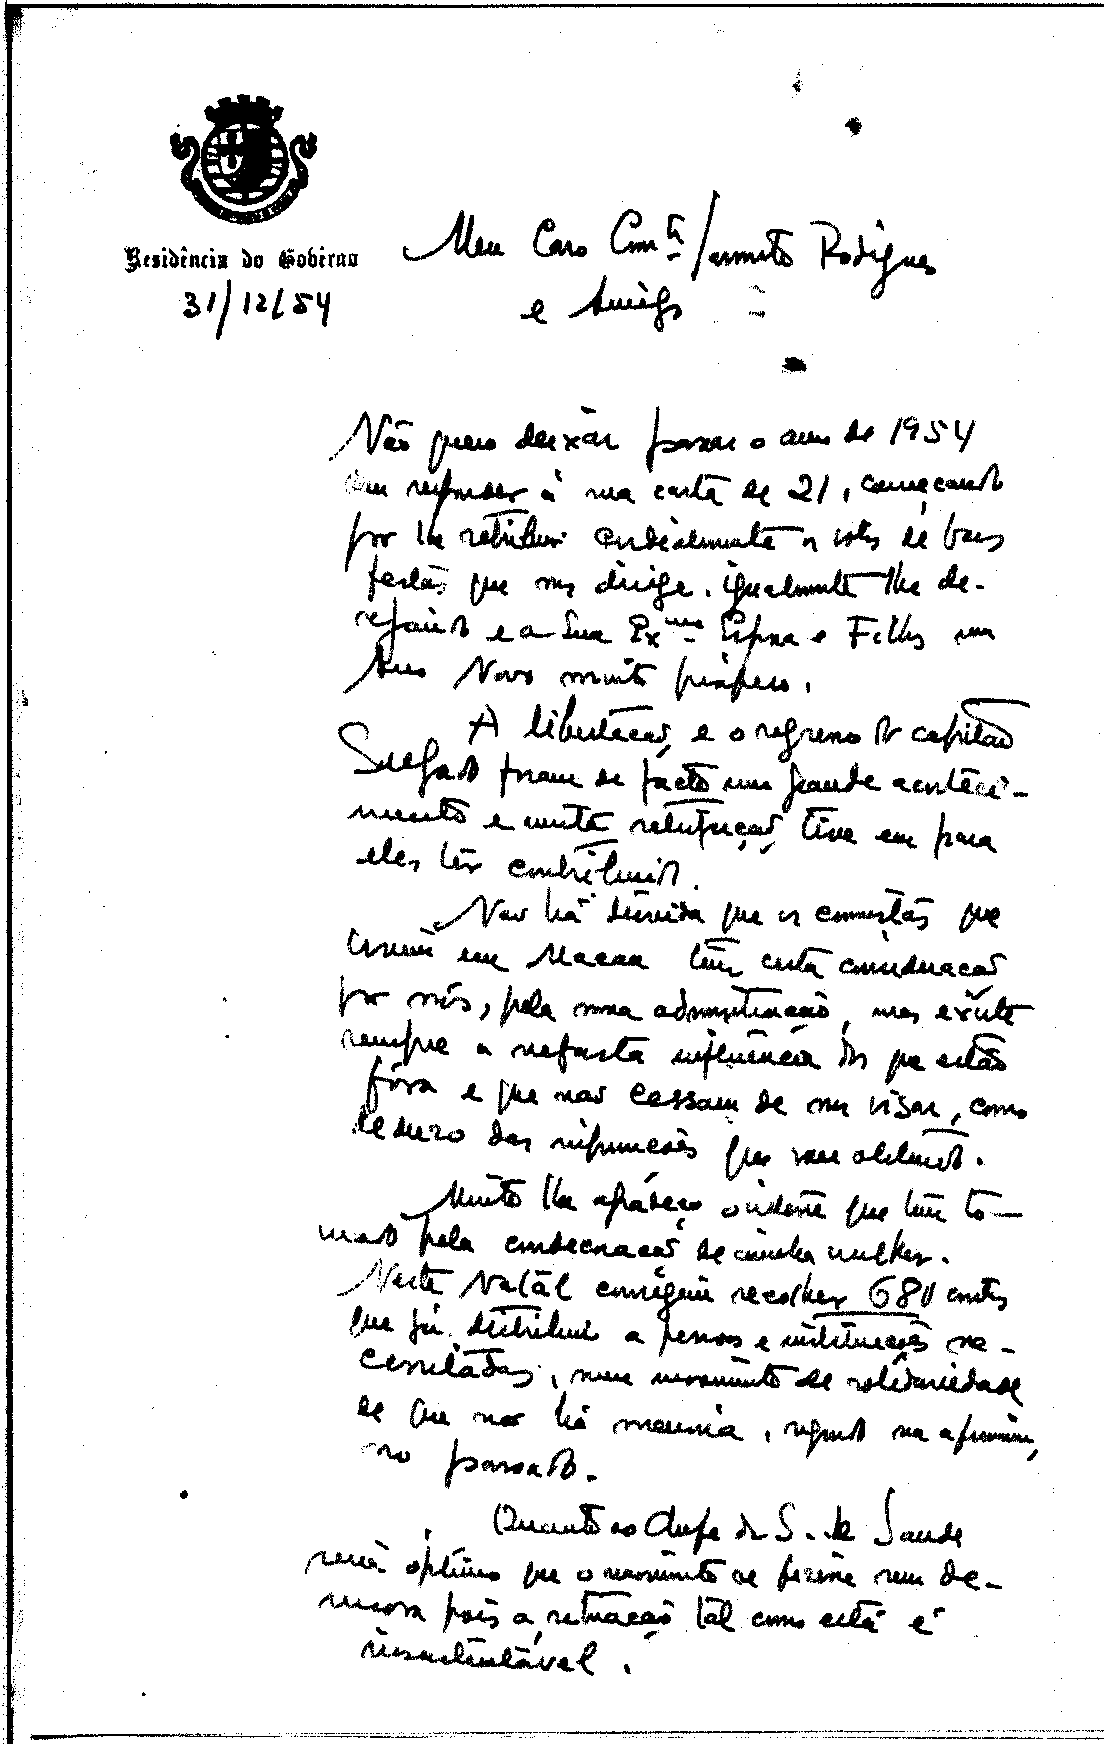 Residência do Governo
31/12/54
Meu Caro Comte Sarmento Rodrigues
e Amigo
Não quero deixar passar o ano de 1954
sem responder à sua carta de 21, começando
por lhe retribuir cordialmente os votos de boas
festas que nos dirige. Igualmente lhe de-
sejando e a Sua Exma Esposa e Filhos um
Ano Novo muito próspero.
A libertação e o regresso do capitão
foram de facto um grande aconteci-
mento e muita satisfação tive em para
eles ter contribuido.
Não há dúvida que os comunistas que
em Macau têm certa consideração
por nós, pela nossa administração, mas existe
sempre a nefasta influência dos que estão
fóra e que não cessam de nos visar, como
deduzo das informações que vou obtendo.
Muito lhe agradeço o interesse que tem to-
mado pela condecoração de minha mulher.
Neste Natal consegui recolher 680 contos
que já distribui a pessoas e instituições ne-
cessitadas, num movimento de solidariedade
de que não há memória, segundo me afirmam,
no passado.
Quanto ao Chefe da S. de Saude
será óptimo que o movimento se faça sem de-
mora pois a situação tal como está é
insustentável.